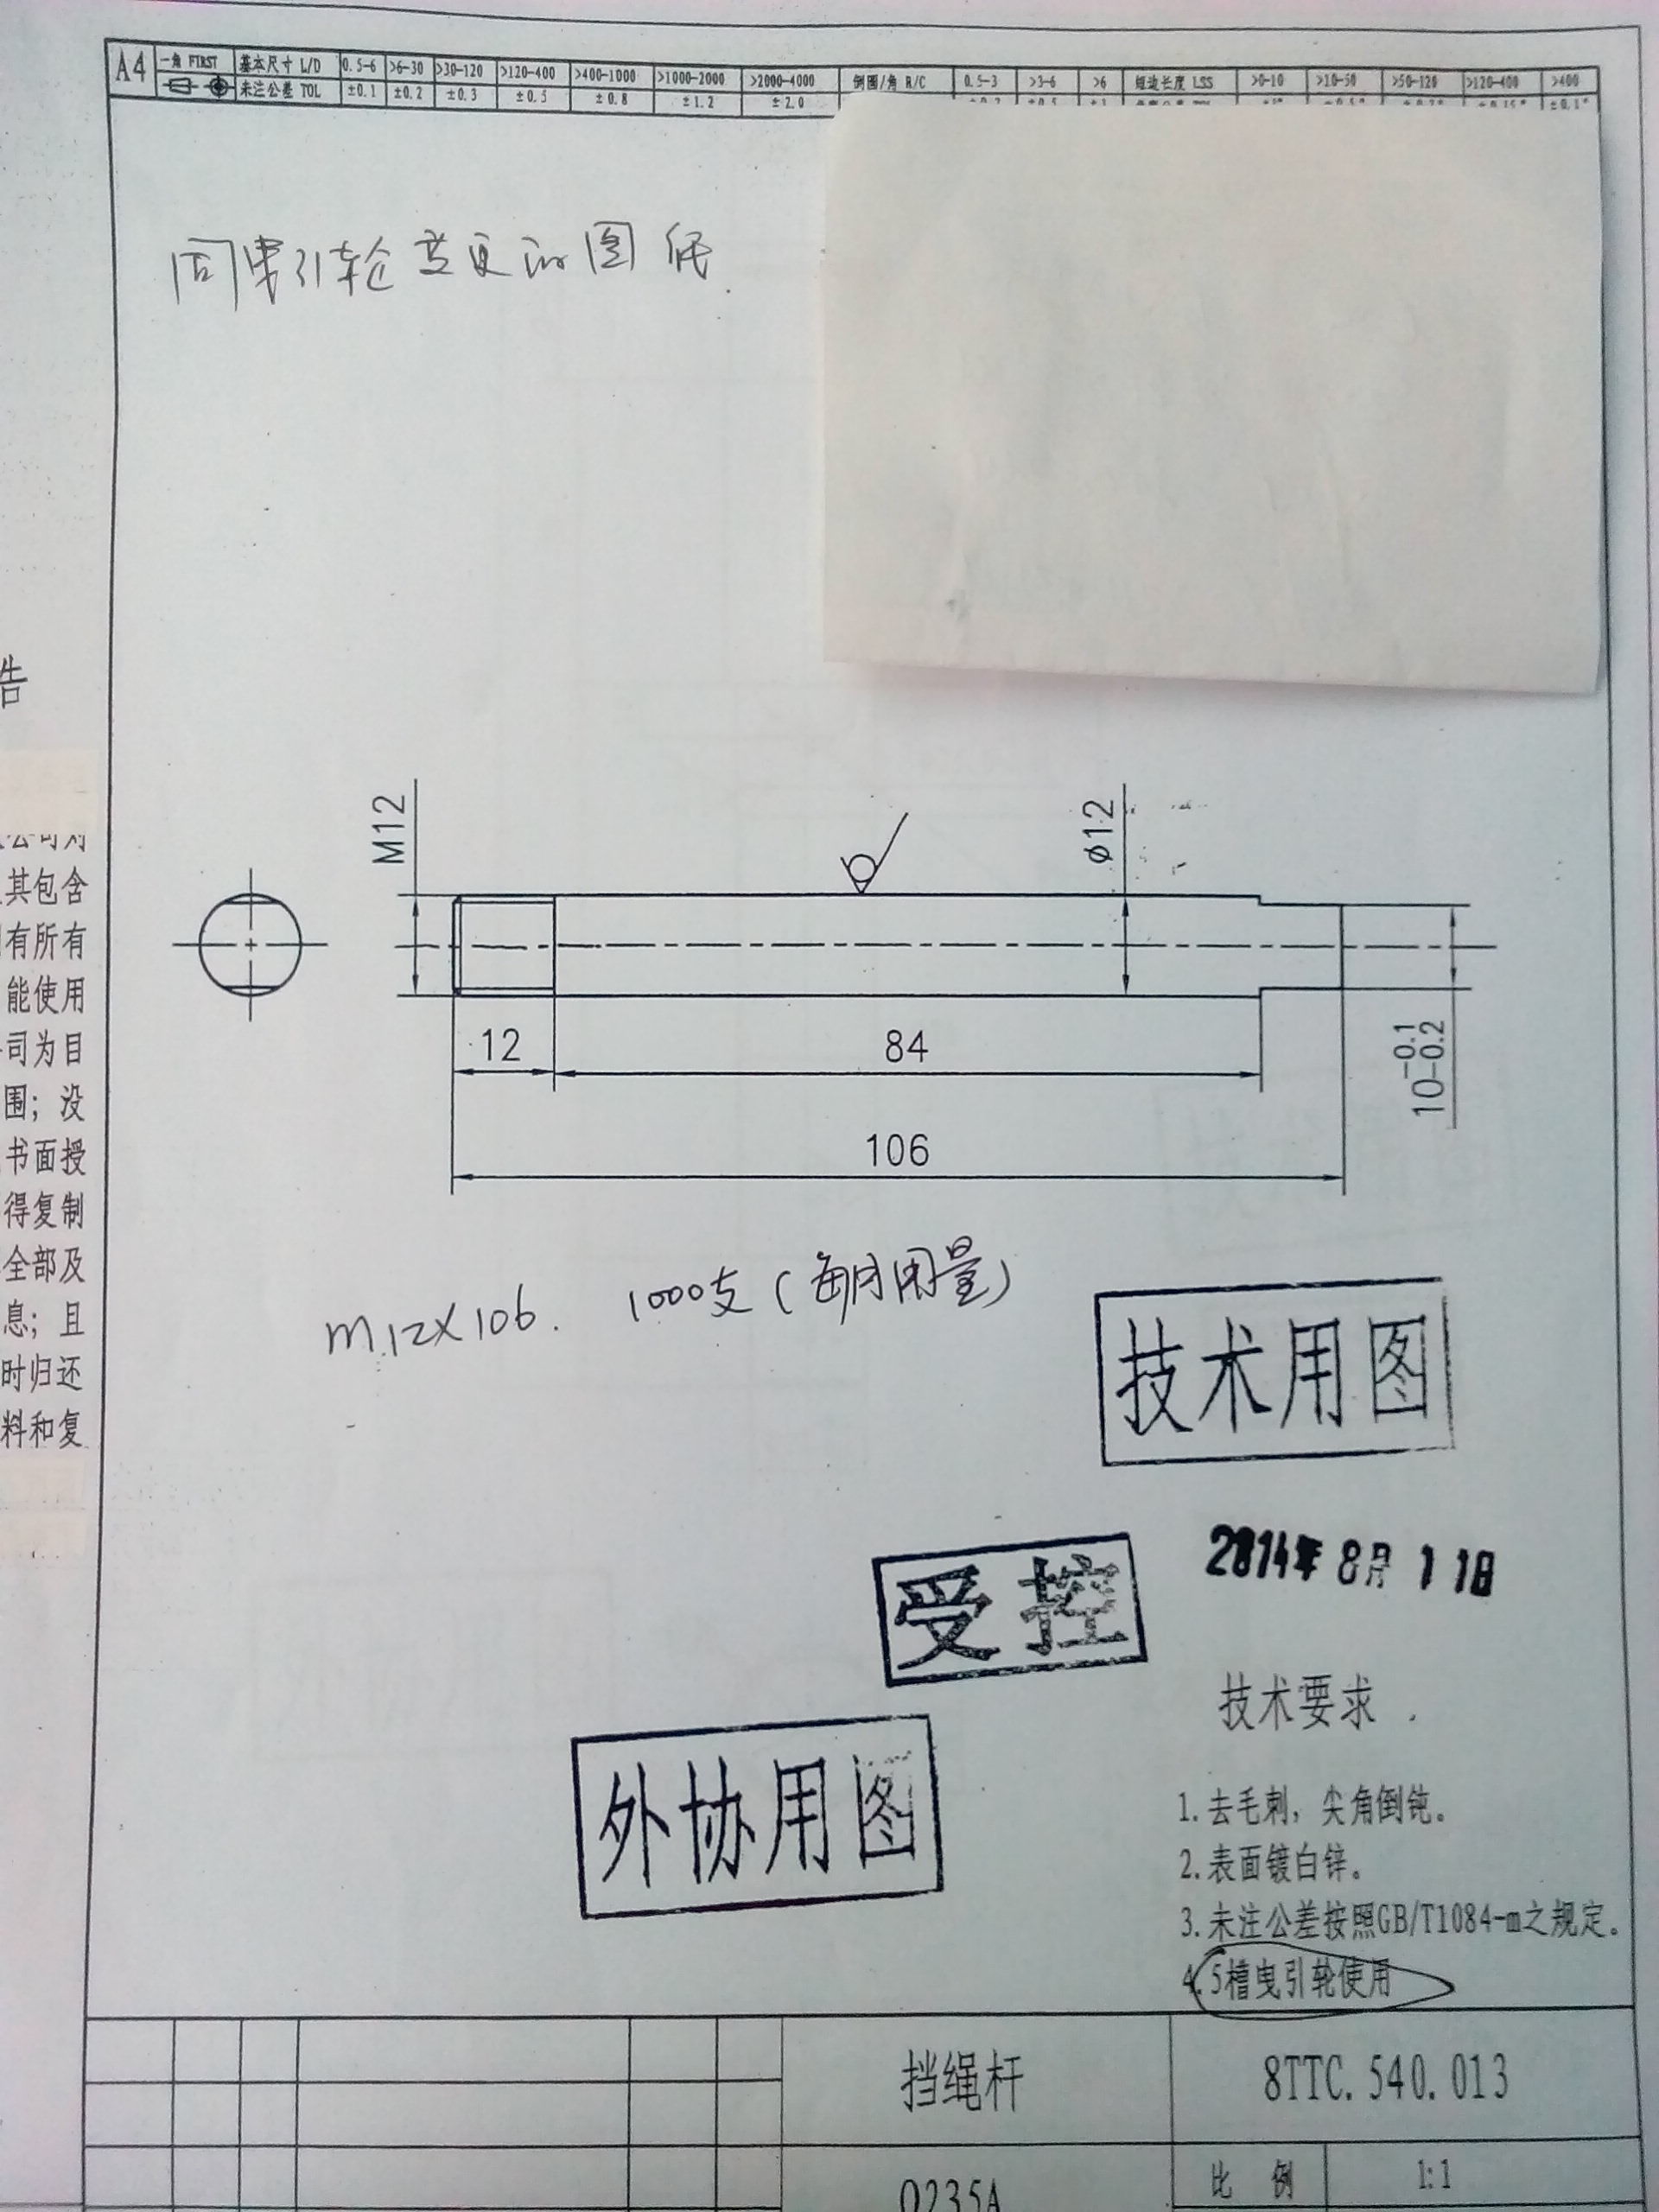 A4 一角 FIRST 基本尺寸 L/D 0.5-6 >6-30 >30-120 >120-400 >400-1000 >1000-2000 >2000-4000 倒圆/角 R/C 0.5-3 >3-6 >6 短边长度 LSS >0-10 >10-50 >50-120 >120-400 >400
未注公差 TOL ±0.1 ±0.2 ±0.3 ±0.5 ±0.8 ±1.2 ±2.0
引轮变更的图纸.
告
其包含
有所有
能使用
司为目
围；没
书面授
得复制
全部及
息；且
时归还
料和复
M12
ø12
12
84
10-0.1-0.2
106
M12X106. 1000支(每月用量)
技术用图
受控
2014年8月11日
外协用图
技术要求
1.去毛刺，尖角倒钝。
2.表面镀白锌。
3.未注公差按照GB/T1084-m之规定。
4.5槽曳引轮使用
挡绳杆
8TTC.540.013
Q235A
比例
1:1